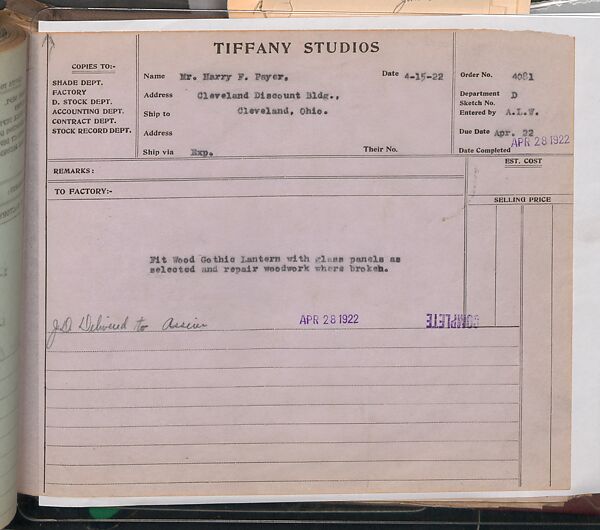 TIFFANY STUDIOS
COPIES TO:-
SHADE DEPT.
FACTORY
D. STOCK DEPT.
ACCOUNTING DEPT.
CONTRACT DEPT.
STOCK RECORD DEPT.
Name Mr. Harry F. Payer, Date 4-15-22
Address Cleveland Discount Bldg.,
Ship to Cleveland, Ohio.
Address
Ship via Exp. Their No.
Order No. 4081
Department D
Sketch No.
Entered by A.L.W.
Due Date Apr. 22
APR 28 1922
Date Completed
REMARKS:
EST. COST
TO FACTORY:-
SELLING PRICE
Fit Wood Gothic Lantern with glass panels as
selected and repair woodwork where broken.
Delivered to
APR 28 1922
COMPLETE